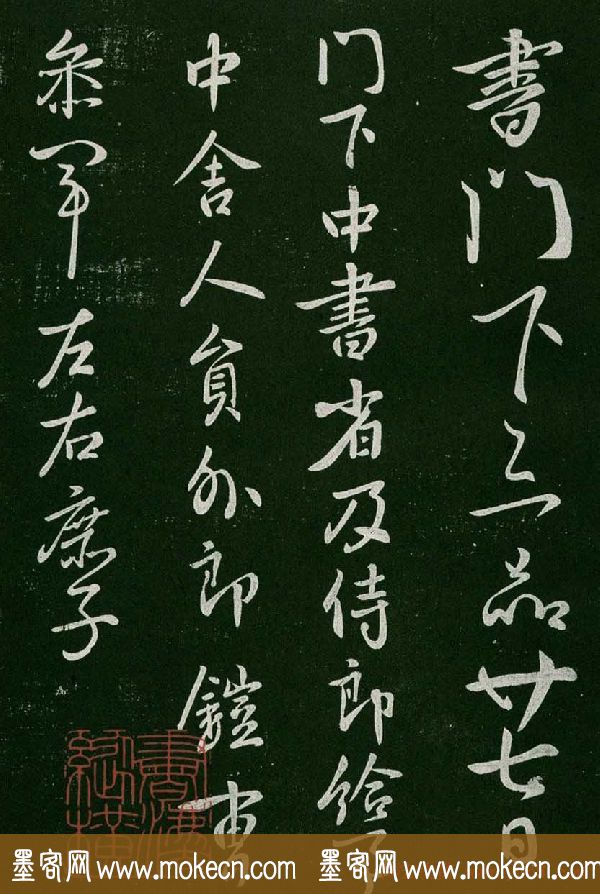 書門下三品廿七日
門下中書省及侍郎給事
中舍人員外郎 鎧曹
參軍 左右庶子
書海縱橫
墨客网 www.mokecn.com 墨客网 www.mokecn.com